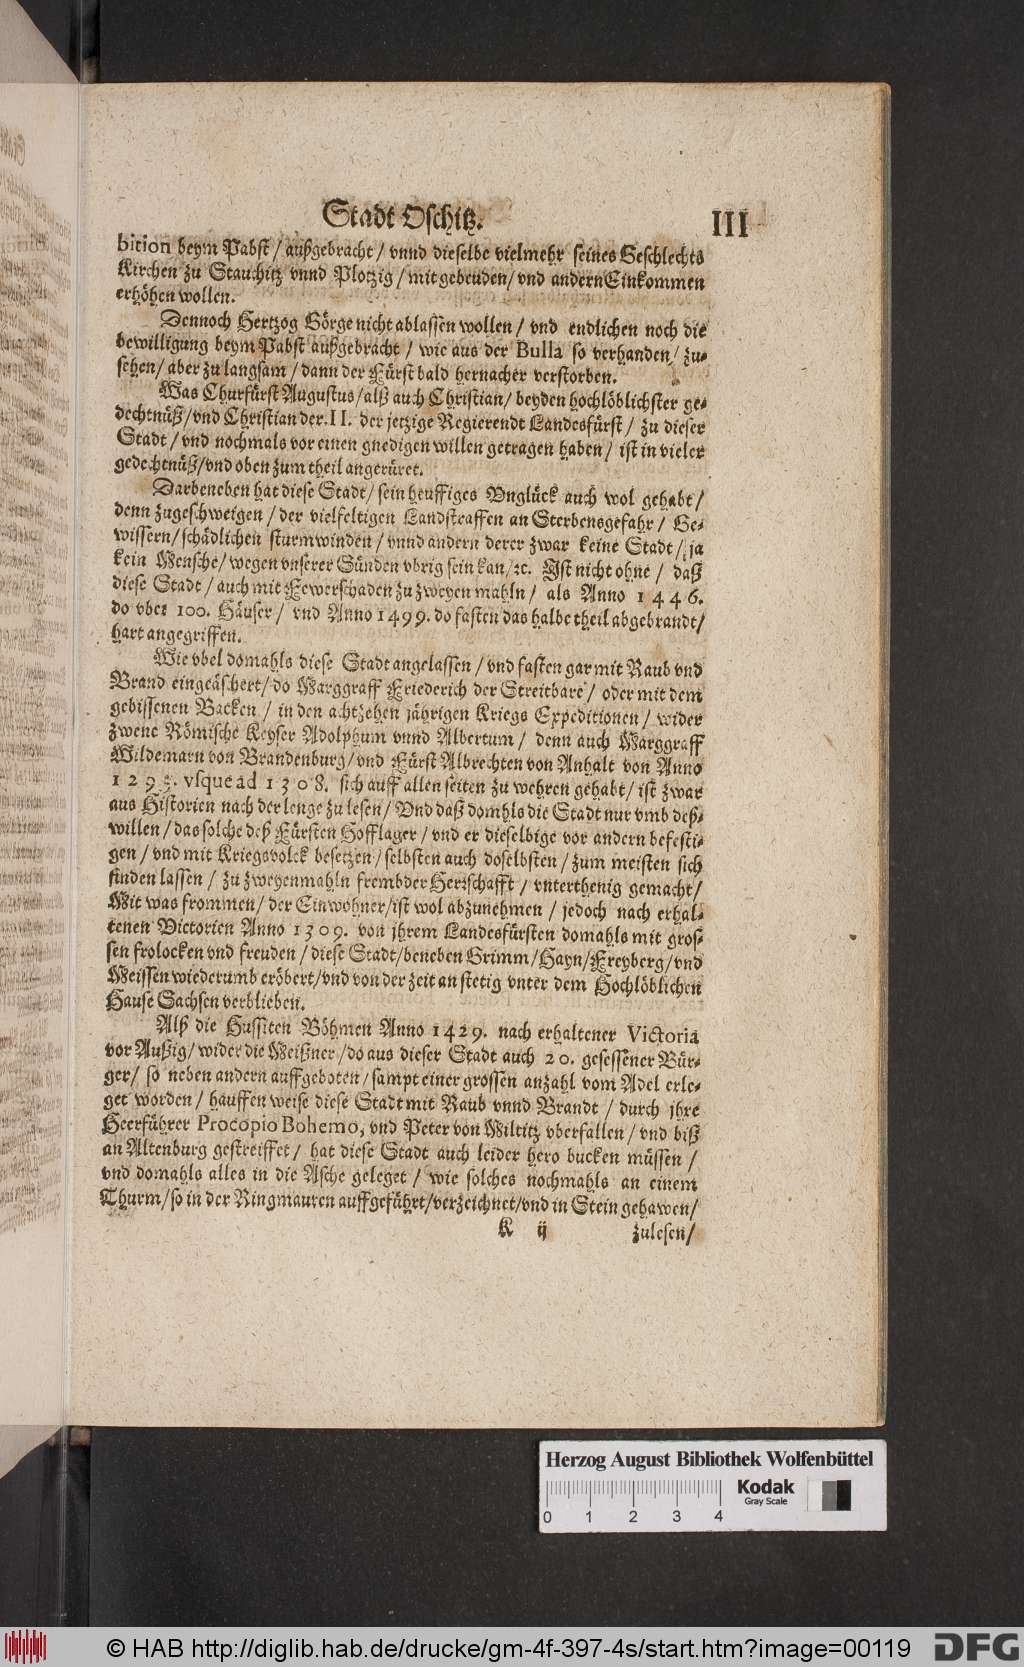 Stadt Oschitz.
III
bition beym Pabst / außgebracht / vnnd dieselbe vielmehr seines Geschlechts
Kirchen zu Stauchitz vnnd Plotzig / mit gebeuden / vnd andern Einkommen
erhöhen wollen.
Dennoch Hertzog Görge nicht ablassen wollen / vnd endlichen noch die
bewilligung beym Pabst außgebracht / wie aus der Bulla so verhanden / zu-
sehen / aber zu langsam / dann der Fürst bald hernacher verstorben.
Was Churfürst Augustus / alß auch Christian / beyden hochlöblichster ge-
dechtnüß / vnd Christian der II. der jetzige Regierendt Landesfürst / zu dieser
Stadt / vnd nochmals vor einen gnedigen willen getragen haben / ist in vieler
gedechtnüß / vnd oben zum theil angerüret.
Darbeneben hat diese Stadt / sein heuffiges Vnglück auch wol gehabt /
denn zugeschweigen / der vielfeltigen Landstraffen an Sterbensgefahr / Ge-
wissern / schädlichen sturmwinden / vnnd andern derer zwar keine Stadt / ja
kein Mensche / wegen vnserer Sünden vbrig sein kan / ꝛc. Ist nicht ohne / daß
diese Stadt / auch mit Fewerschaden zu zweyen mahln / als Anno 1446.
do vber 100. Häuser / vnd Anno 1499. do fasten das halbe theil abgebrandt /
hart angegriffen.
Wie vbel domahls diese Stadt angelassen / vnd fasten gar mit Raub vnd
Brand eingeäschert / do Marggraff Friederich der Streitbare / oder mit dem
gebissenen Backen / in den achtzehen jährigen Kriegs Expeditionen / wider
zwene Römische Keyser Adolphum vnnd Albertum / denn auch Marggraff
Wildemarn von Brandenburg / vnd Fürst Albrechten von Anhalt von Anno
1295. vsque ad 1308. sich auff allen seiten zu wehren gehabt / ist zwar
aus Historien nach der lenge zu lesen / Vnd daß domhls die Stadt nur vmb deß-
willen / das solche deß Fürsten Hofflager / vnd er dieselbige vor andern befesti-
gen / vnd mit Kriegsvolck besetzen / selbsten auch doselbsten / zum meisten sich
finden lassen / zu zweyenmahln frembder Herrschafft / vnterthenig gemacht /
Mit was frommen / der Einwohner / ist wol abzunehmen / jedoch nach erhal-
tenen Victorien Anno 1309. von jhrem Landesfürsten domahls mit gros-
sen frolocken vnd freuden / diese Stadt / beneben Grimm / Hayn / Freyberg / vnd
Meissen wiederumb eröbert / vnd von der zeit an stetig vnter dem Hochlöblichen
Hause Sachsen verblieben.
Alß die Hussiten Böhmen Anno 1429. nach erhaltener Victoria
vor Außig / wider die Meißner / do aus dieser Stadt auch 20. gesessener Bür-
ger / so neben andern auffgeboten / sampt einer grossen anzahl vom Adel erle-
get worden / hauffen weise diese Stadt mit Raub vnnd Brandt / durch jhre
Heerführer Procopio Bohemo, vnd Peter von Miltitz vberfallen / vnd biß
an Altenburg gestreiffet / hat diese Stadt auch leider hero bucken müssen /
vnd domahls alles in die Asche geleget / wie solches nochmahls an einem
Thurm / so in der Ringmauren auffgeführt / verzeichnet / vnd in Stein gehawen /
K ij
zulesen /
Herzog August Bibliothek Wolfenbüttel
Kodak
Gray Scale
0 1 2 3 4
© HAB http://diglib.hab.de/drucke/gm-4f-397-4s/start.htm?image=00119
DFG